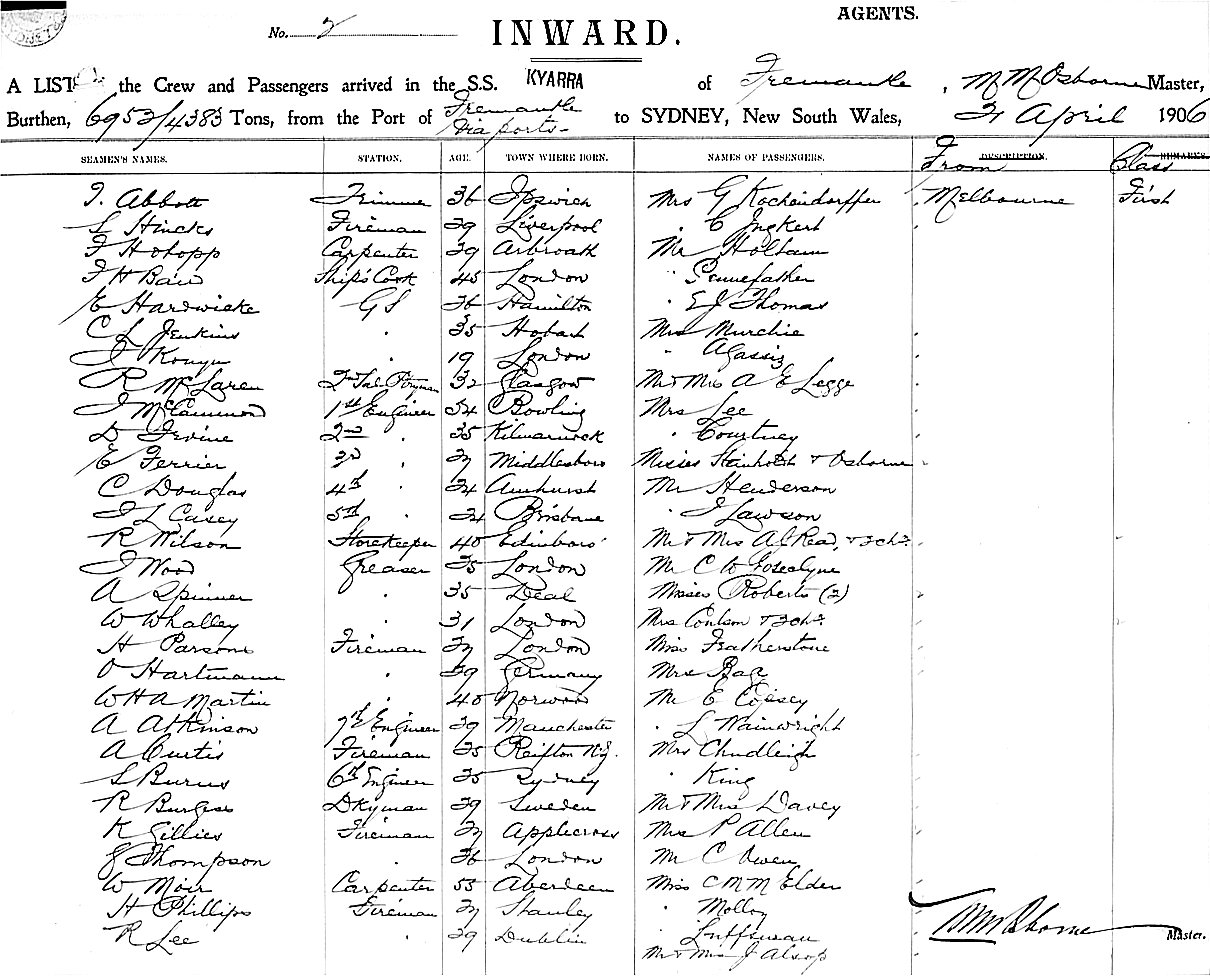 AGENTS.
No. 2
INWARD.
A LIST the Crew and Passengers arrived in the S.S. KYARRA of Fremantle, Osborne Master,
Burthen, 6953/4383 Tons, from the Port of Fremantle via ports to SYDNEY, New South Wales, April 1906
SEAMEN'S NAMES. STATION. AGE. TOWN WHERE BORN. NAMES OF PASSENGERS. From DESCRIPTION. Class REMARKS.
Abbott Trimmer 36 Ipswich Mrs G Kochendorffer Melbourne First
S Hincks Fireman Liverpool " C
Hohopp Carpenter Arbroath Mr Holtam
Bain Ship's Cook 45 London " Pennefather
E Hardwicke GS 36 Hamilton " E J Thomas
C L Jenkins " 35 Hobart Mrs Murchie
" 19 London " Agassiz
R McLaren 32 Glasgow Mr & Mrs A E Legge
J McCammond 1st Engineer 54 Bowling Mrs Lee
D Irvine 2nd " 35 Kilmarnock " Courtney
E Ferrier 3rd " Middlesboro Misses & Osborne
C Douglas 4th " 24 Amhurst Mr Henderson
J L Casey 5th " 24 Brisbane " J Lawson
R Wilson Storekeeper 40 Edinboro' Mr & Mrs A J Read, &
J Wood Greaser 35 London Mr C W
A Spinner " 35 Deal Misses Roberts (2)
W Whalley " 31 London Mrs Coulson &
H Parsons Fireman London Miss Featherstone
O Hartmann " Germany Mrs
W H A Martin " 40 Norwood Mr E
A Atkinson 7th Engineer Manchester " L Wainwright
A Curtis Fireman 35 Reefton N.Z. Mrs Chudleigh
S Burns 6th Engineer 35 Sydney " King
R Burgess Dkyman Sweden Mr & Mrs Davey
K Gillies Fireman Applecross Mrs P Allen
Thompson " 36 London Mr C Owen
W Moir Carpenter 55 Aberdeen Miss C M M Elder
H Phillips Fireman Stanley " Molloy
R Lee " Dublin "
Mr & Mrs J Alsop
Osborne Master.